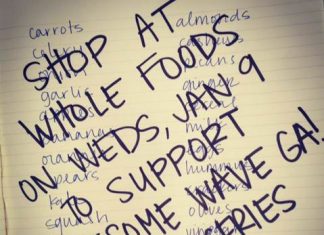 SHOP AT
WHOLE FOODS
ON WEDS, JAN 9
TO SUPPORT
SOME WAVE GA!
ERIES
carrots
celery
garlic
bananas
pears
squash
almonds
cashews
pecans
ginger
hummus
olives